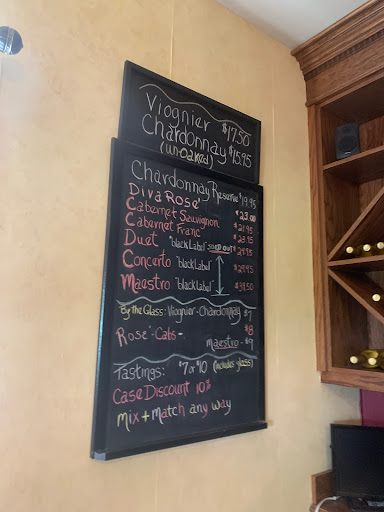 Viognier $17.50
Chardonnay $15.95
(un-oaked)
Chardonnay Reserve $19.95
Diva Rosé $23.00
Cabernet Sauvignon $21.95
Cabernet Franc $23.95
Duet "black Label" SOLD OUT $24.95
Concerto "black Label" $29.95
Maestro "black Label" $39.50
By the Glass: Viognier - Chardonnay $7
Rose' - Cabs - $8
maestro - $9
Tastings: $7 or $10 (includes glass)
Case Discount 10%
Mix + Match any way